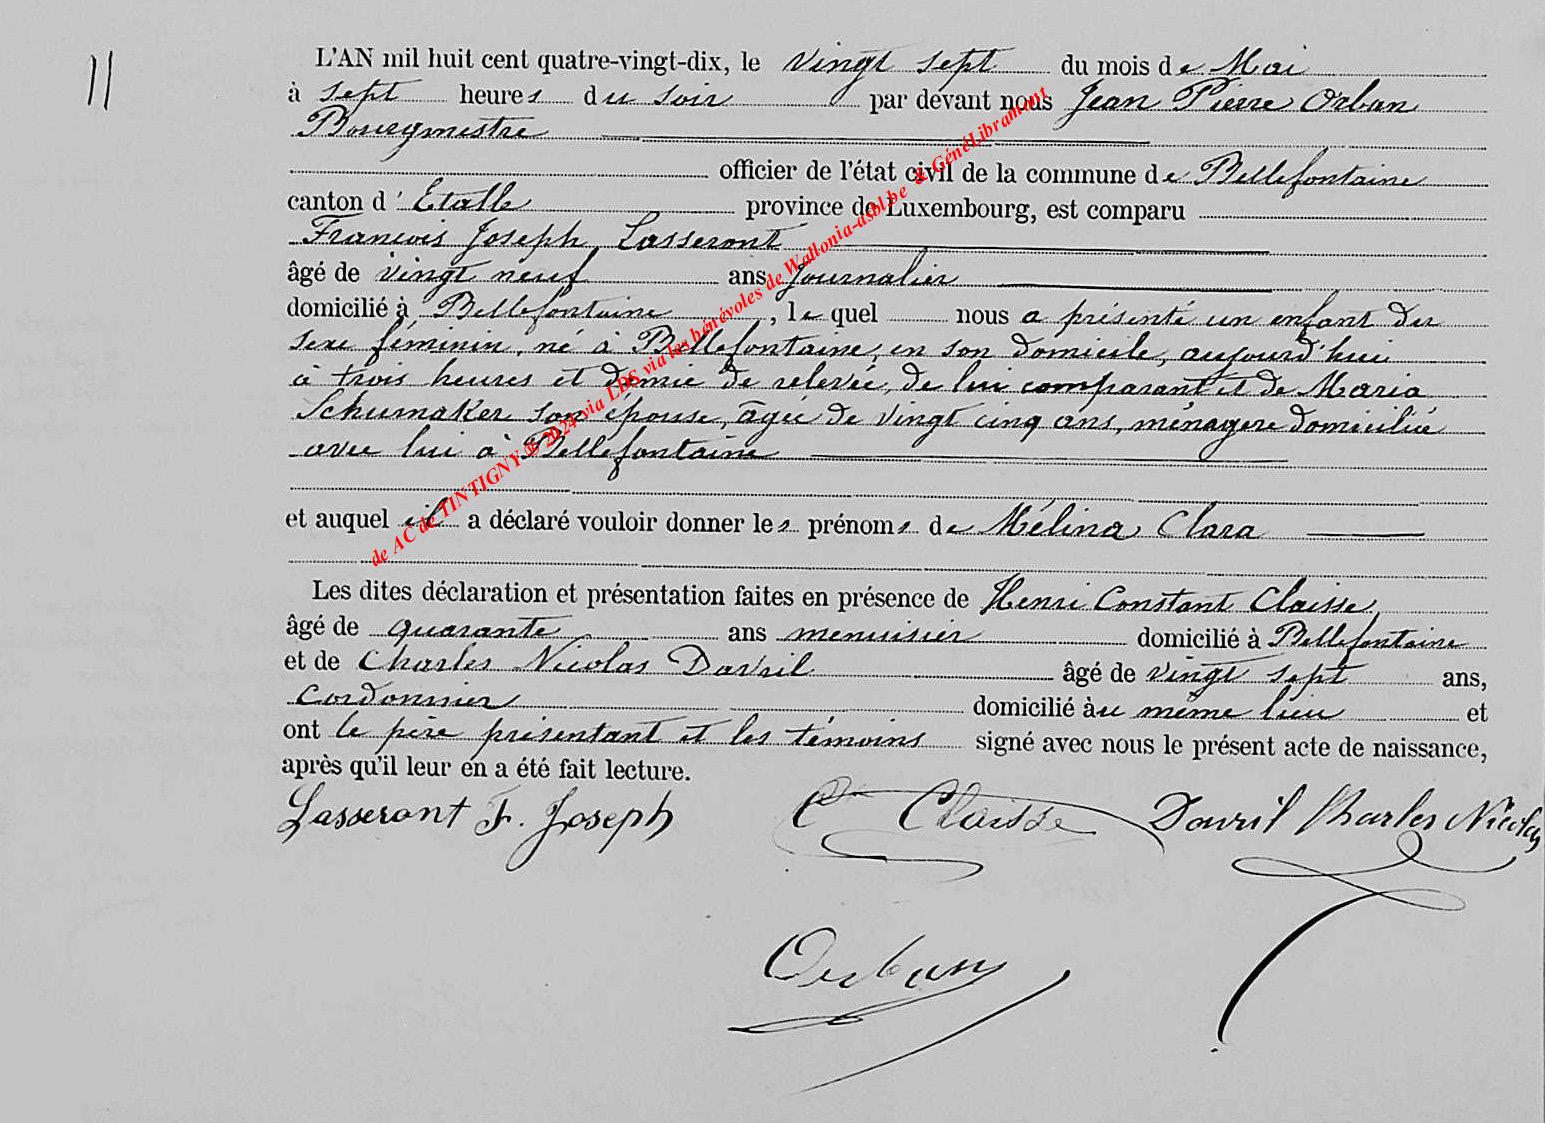 11
L'AN mil huit cent quatre-vingt-dix, le vingt sept du mois de Mai
à sept heures du soir par devant nous Jean Pierre Orban
Bourgmestre
officier de l'état civil de la commune de Bellefontaine
canton d'Etalle province de Luxembourg, est comparu
François Joseph Lasseront
âgé de vingt neuf ans Journalier
domicilié à Bellefontaine, le quel nous a présenté un enfant du
sexe féminin, né à Bellefontaine, en son domicile, aujourd'hui
à trois heures et demie de relevée, de lui comparant et de Maria
Schumaker son épouse, âgée de vingt cinq ans, ménagère domiciliée
avec lui à Bellefontaine
et auquel il a déclaré vouloir donner les prénoms de Mélina Clara
Les dites déclaration et présentation faites en présence de Henri Constant Claisse
âgé de quarante ans menuisier domicilié à Bellefontaine
et de Charles Nicolas Davril âgé de vingt sept ans,
cordonnier domicilié au même lieu et
ont le père présentant et les témoins signé avec nous le présent acte de naissance,
après qu'il leur en a été fait lecture.
Lasseront F. Joseph Claisse Davril Charles Nicolas
Orban
de AC de TINTIGNY © 2024 via LDS via les bénévoles de Wallonia-asbl.be & GénéLibramont